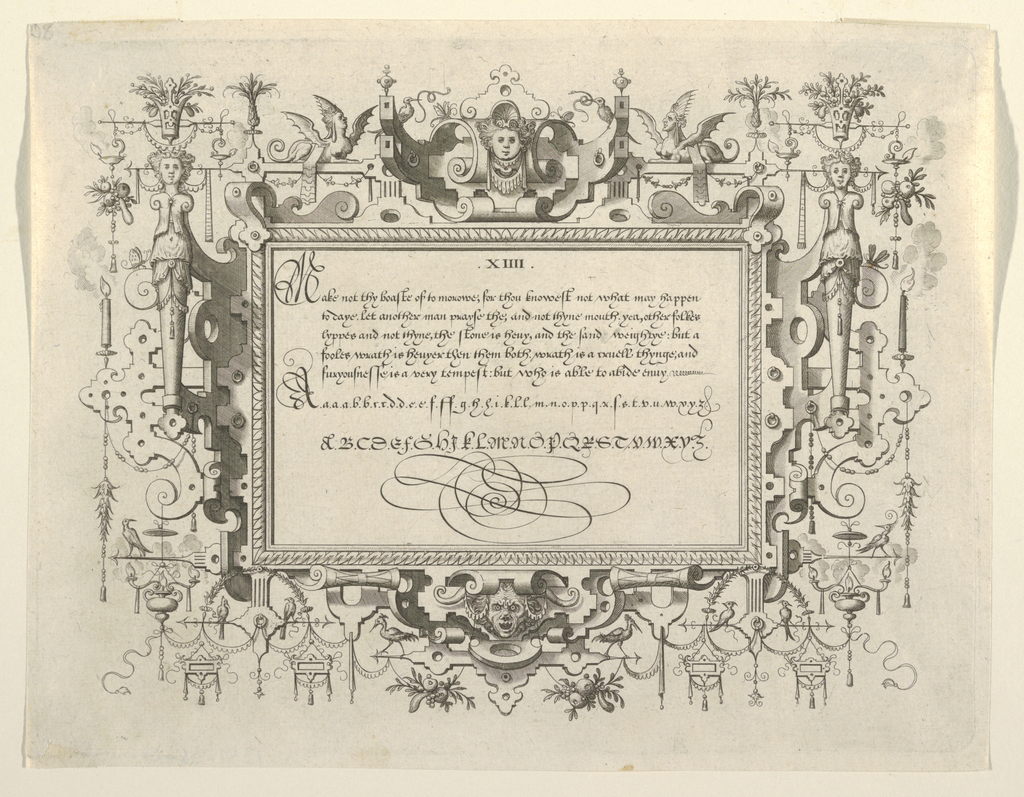 . XIIII .
Make not thy boaste of to morowe; for thou knowest not what may happen
to daye. Let another man prayse the; and not thyne mouth. yea, other folkes
lyppes and not thyne, the stone is heuy, and the sand weightye: but a
fooles wrath is heuyer then them both, wrath is a cruell thynge; and
furyousnesse is a very tempest: but who is able to abide enuy
A.a.a.a.b.b.c.c.d.d.e.e.f.ff.g.h.h.i.k.l.l.m.n.o.p.p.q.r.f.s.t.v.u.w.x.y.z
A.B.C.D.E.F.G.H.I.K.L.M.N.O.P.Q.R.S.T.V.W.X.Y.Z.